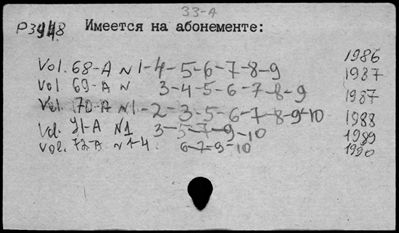 33-A
P3948 Имеется на абонементе:
1986
Vol. 68-A N 1-4-5-6-7-8-9 1987
Vol 69-A N 3-4-5-6-7-8-9 1987
Vol. 70-A N1-2-3-5-6-7-8-9-10 1988
Vol. 71-A N1 3-5-7-9-10 1989
Vol. 72-A N 1-4. 6-7-9-10 1990